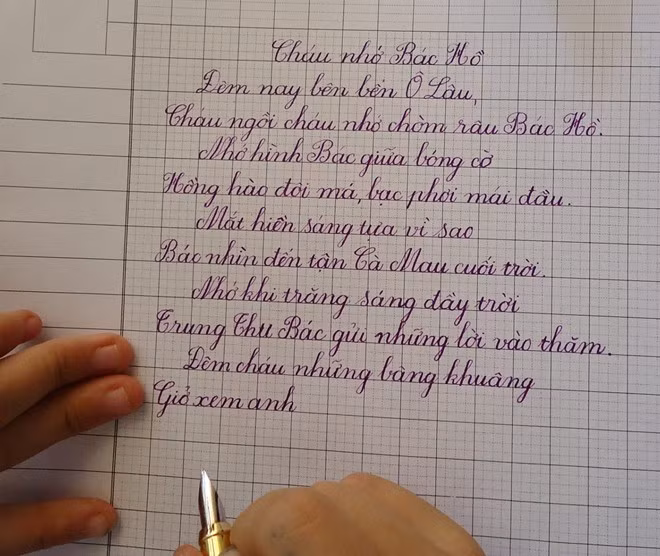 Cháu nhớ Bác Hồ
Đêm nay bên bến Ô Lâu,
Cháu ngồi cháu nhớ chòm râu Bác Hồ.
Nhớ hình Bác giữa bóng cờ
Hồng hào đôi má, bạc phơi mái đầu.
Mắt hiền sáng tựa vì sao
Bác nhìn đến tận Cà Mau cuối trời.
Nhớ khi trăng sáng đầy trời
Trung Thu Bác gửi những lời vào thăm.
Đêm cháu những bâng khuâng
Giở xem anh